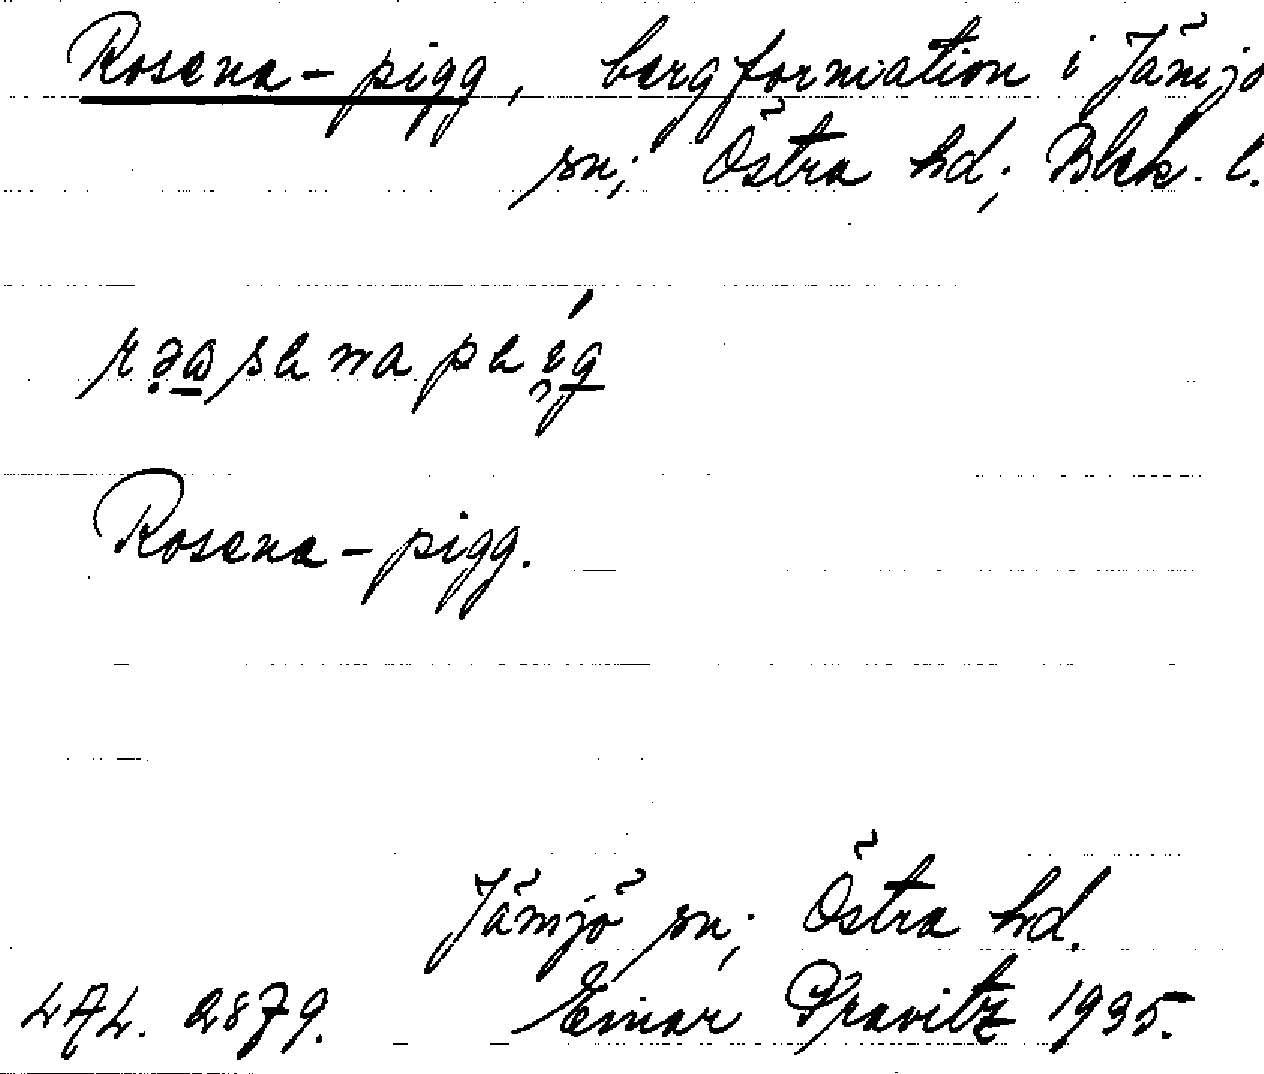 Rosena-pigg, bergformation i Jämjö
sn; Östra hd; Blek. l.
Rosena-pigg.
Jämjö sn; Östra hd.
LAL. 2879. Einar Gravitz 1935.